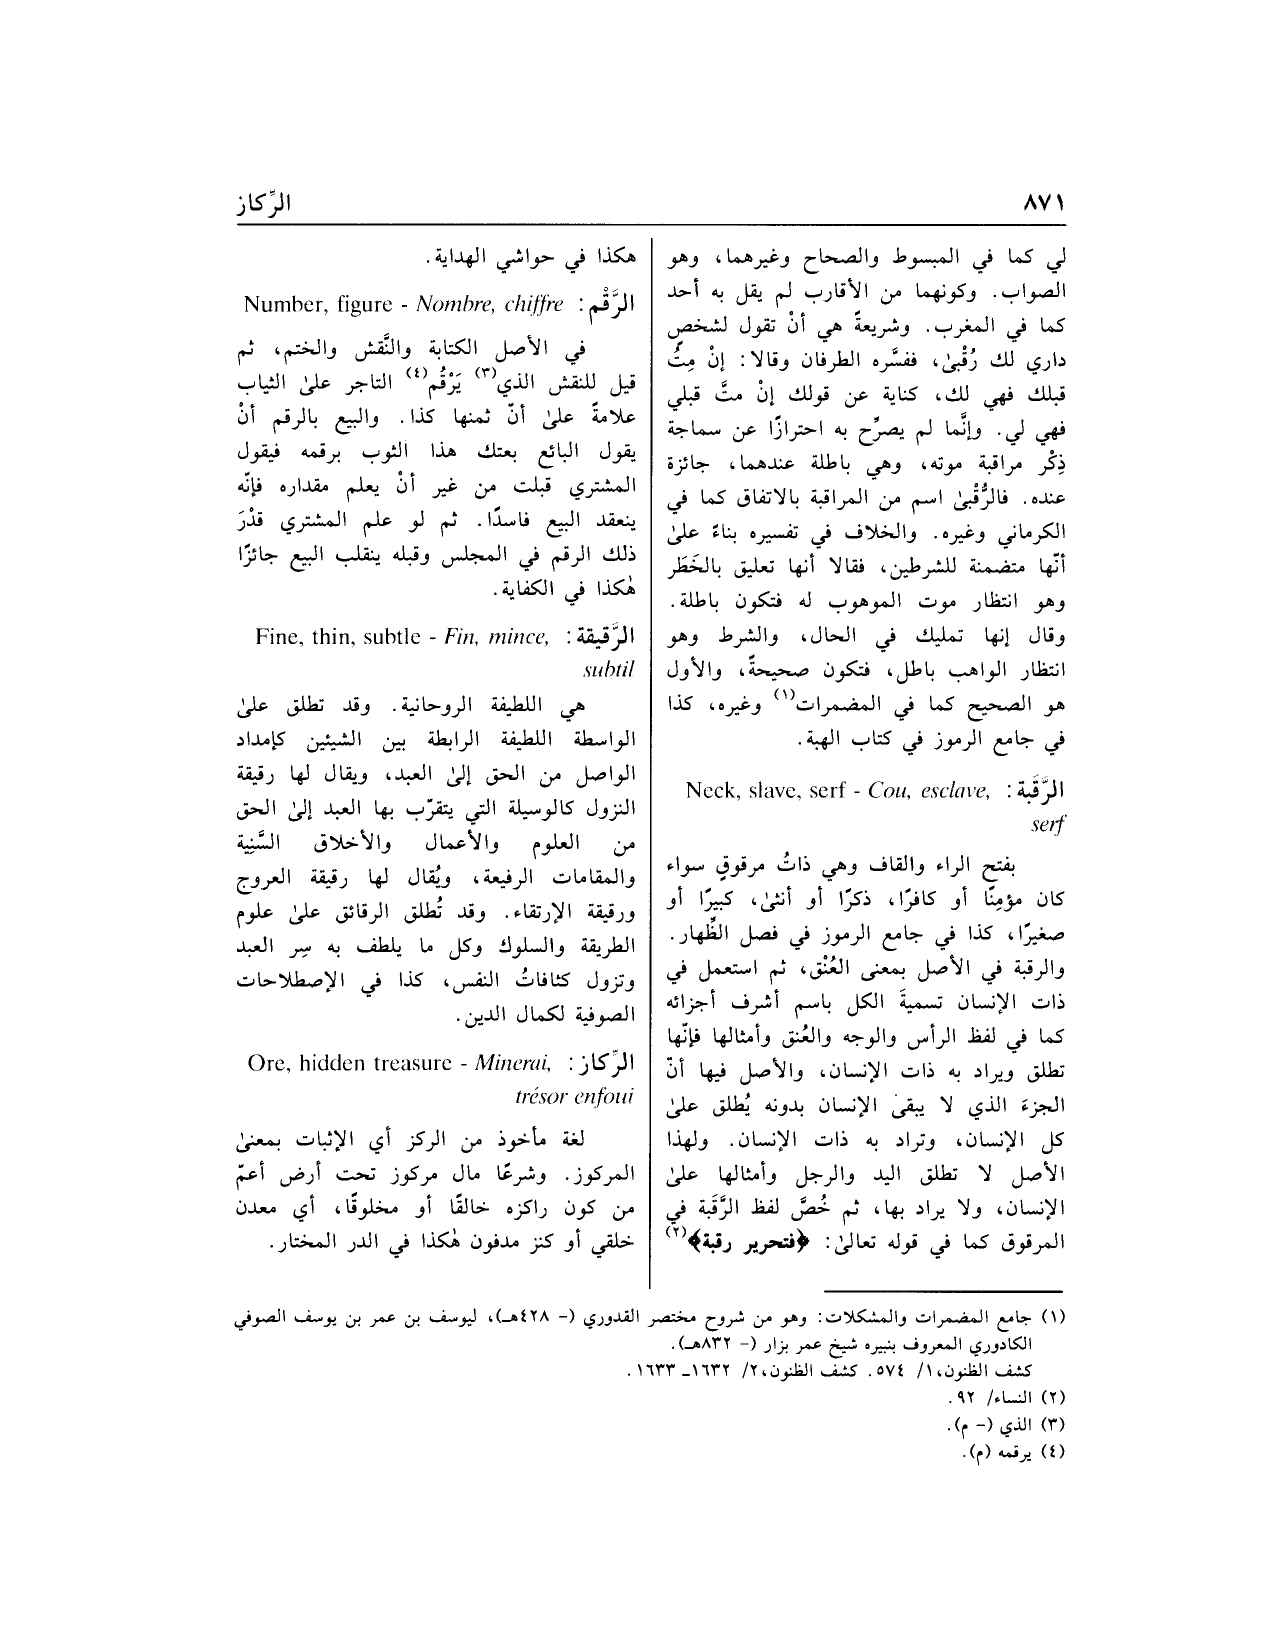 ٨٧١
الرِّكاز
لي كما في المبسوط والصحاح وغيرهما، وهو
الصواب. وكونهما من الأقارب لم يقل به أحد
كما في المغرب. وشريعةً هي أنْ تقول لشخصٍ
داري لك رُقْبىٰ، ففسَّره الطرفان وقالا: إنْ مِتُّ
قبلك فهي لك، كناية عن قولك إنْ متَّ قبلي
فهي لي. وإنَّما لم يصرِّح به احترازًا عن سماجة
ذِكْر مراقبة موته، وهي باطلة عندهما، جائزة
عنده. فالرُّقْبىٰ اسم من المراقبة بالاتفاق كما في
الكرماني وغيره. والخلاف في تفسيره بناءً علىٰ
أنّها متضمنة للشرطين، فقالا أنها تعليق بالخَطَر
وهو انتظار موت الموهوب له فتكون باطلة.
وقال إنها تمليك في الحال، والشرط وهو
انتظار الواهب باطل، فتكون صحيحةً، والأول
هو الصحيح كما في المضمرات(١) وغيره، كذا
في جامع الرموز في كتاب الهبة.
الرَّقَبة: Neck, slave, serf - Cou, esclave,
serf
بفتح الراء والقاف وهي ذاتُ مرقوقٍ سواء
كان مؤمِنًا أو كافرًا، ذكرًا أو أنثىٰ، كبيرًا أو
صغيرًا، كذا في جامع الرموز في فصل الظِّهار.
والرقبة في الأصل بمعنى العُنْق، ثم استعمل في
ذات الإنسان تسميةَ الكل باسم أشرف أجزائه
كما في لفظ الرأس والوجه والعُنق وأمثالها فإنّها
تطلق ويراد به ذات الإنسان، والأصل فيها أنّ
الجزءَ الذي لا يبقىٰ الإنسان بدونه يُطلق علىٰ
كل الإنسان، وتراد به ذات الإنسان. ولهذا
الأصل لا تطلق اليد والرجل وأمثالها علىٰ
الإنسان، ولا يراد بها، ثم خُصَّ لفظ الرَّقَبة في
المرقوق كما في قوله تعالىٰ: ﴿فتحرير رقبة﴾(٢)
هكذا في حواشي الهداية.
الرَّقْم: Number, figure - Nombre, chiffre
في الأصل الكتابة والنَّقش والختم، ثم
قيل للنقش الذي(٣) يَرْقُم(٤) التاجر علىٰ الثياب
علامةً علىٰ أنّ ثمنها كذا. والبيع بالرقم أنْ
يقول البائع بعتك هذا الثوب برقمه فيقول
المشتري قبلت من غير أنْ يعلم مقداره فإنّه
ينعقد البيع فاسدًا. ثم لو علم المشتري قدْرَ
ذلك الرقم في المجلس وقبله ينقلب البيع جائزًا
هٰكذا في الكفاية.
الرَّقيقة: Fine, thin, subtle - Fin, mince,
subtil
هي اللطيفة الروحانية. وقد تطلق علىٰ
الواسطة اللطيفة الرابطة بين الشيئين كإمداد
الواصل من الحق إلىٰ العبد، ويقال لها رقيقة
النزول كالوسيلة التي يتقرّب بها العبد إلىٰ الحق
من العلوم والأعمال والأخلاق السَّنِية
والمقامات الرفيعة، ويُقال لها رقيقة العروج
ورقيقة الإرتقاء. وقد تُطلق الرقائق علىٰ علوم
الطريقة والسلوك وكل ما يلطف به سِر العبد
وتزول كثافاتُ النفس، كذا في الإصطلاحات
الصوفية لكمال الدين.
الرِّكاز: Ore, hidden treasure - Minerai,
trésor enfoui
لغة مأخوذ من الركز أي الإثبات بمعنىٰ
المركوز. وشرعًا مال مركوز تحت أرض أعمّ
من كون راكزه خالقًا أو مخلوقًا، أي معدن
خلقي أو كنز مدفون هٰكذا في الدر المختار.
(١) جامع المضمرات والمشكلات: وهو من شروح مختصر القدوري (- ٤٢٨هـ)، ليوسف بن عمر بن يوسف الصوفي
الكادوري المعروف بنبيره شيخ عمر بزار (- ٨٣٢هـ).
كشف الظنون،١/ ٥٧٤. كشف الظنون،٢/ ١٦٣٢ـ ١٦٣٣.
(٢) النساء/ ٩٢.
(٣) الذي (- م).
(٤) يرقمه (م).